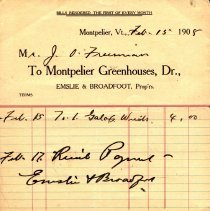 BILLS RENDERED THE FIRST OF EVERY MONTH
Montpelier, Vt., Feb. 15 1908
Mr. J. O. Freeman
To Montpelier Greenhouses, Dr.,
EMSLIE & BROADFOOT, Prop'rs.
TERMS
Feb. 15 To 1 Galax 4,00
Feb. 17 Rec'd Paymet
Emslie & Broadfoot